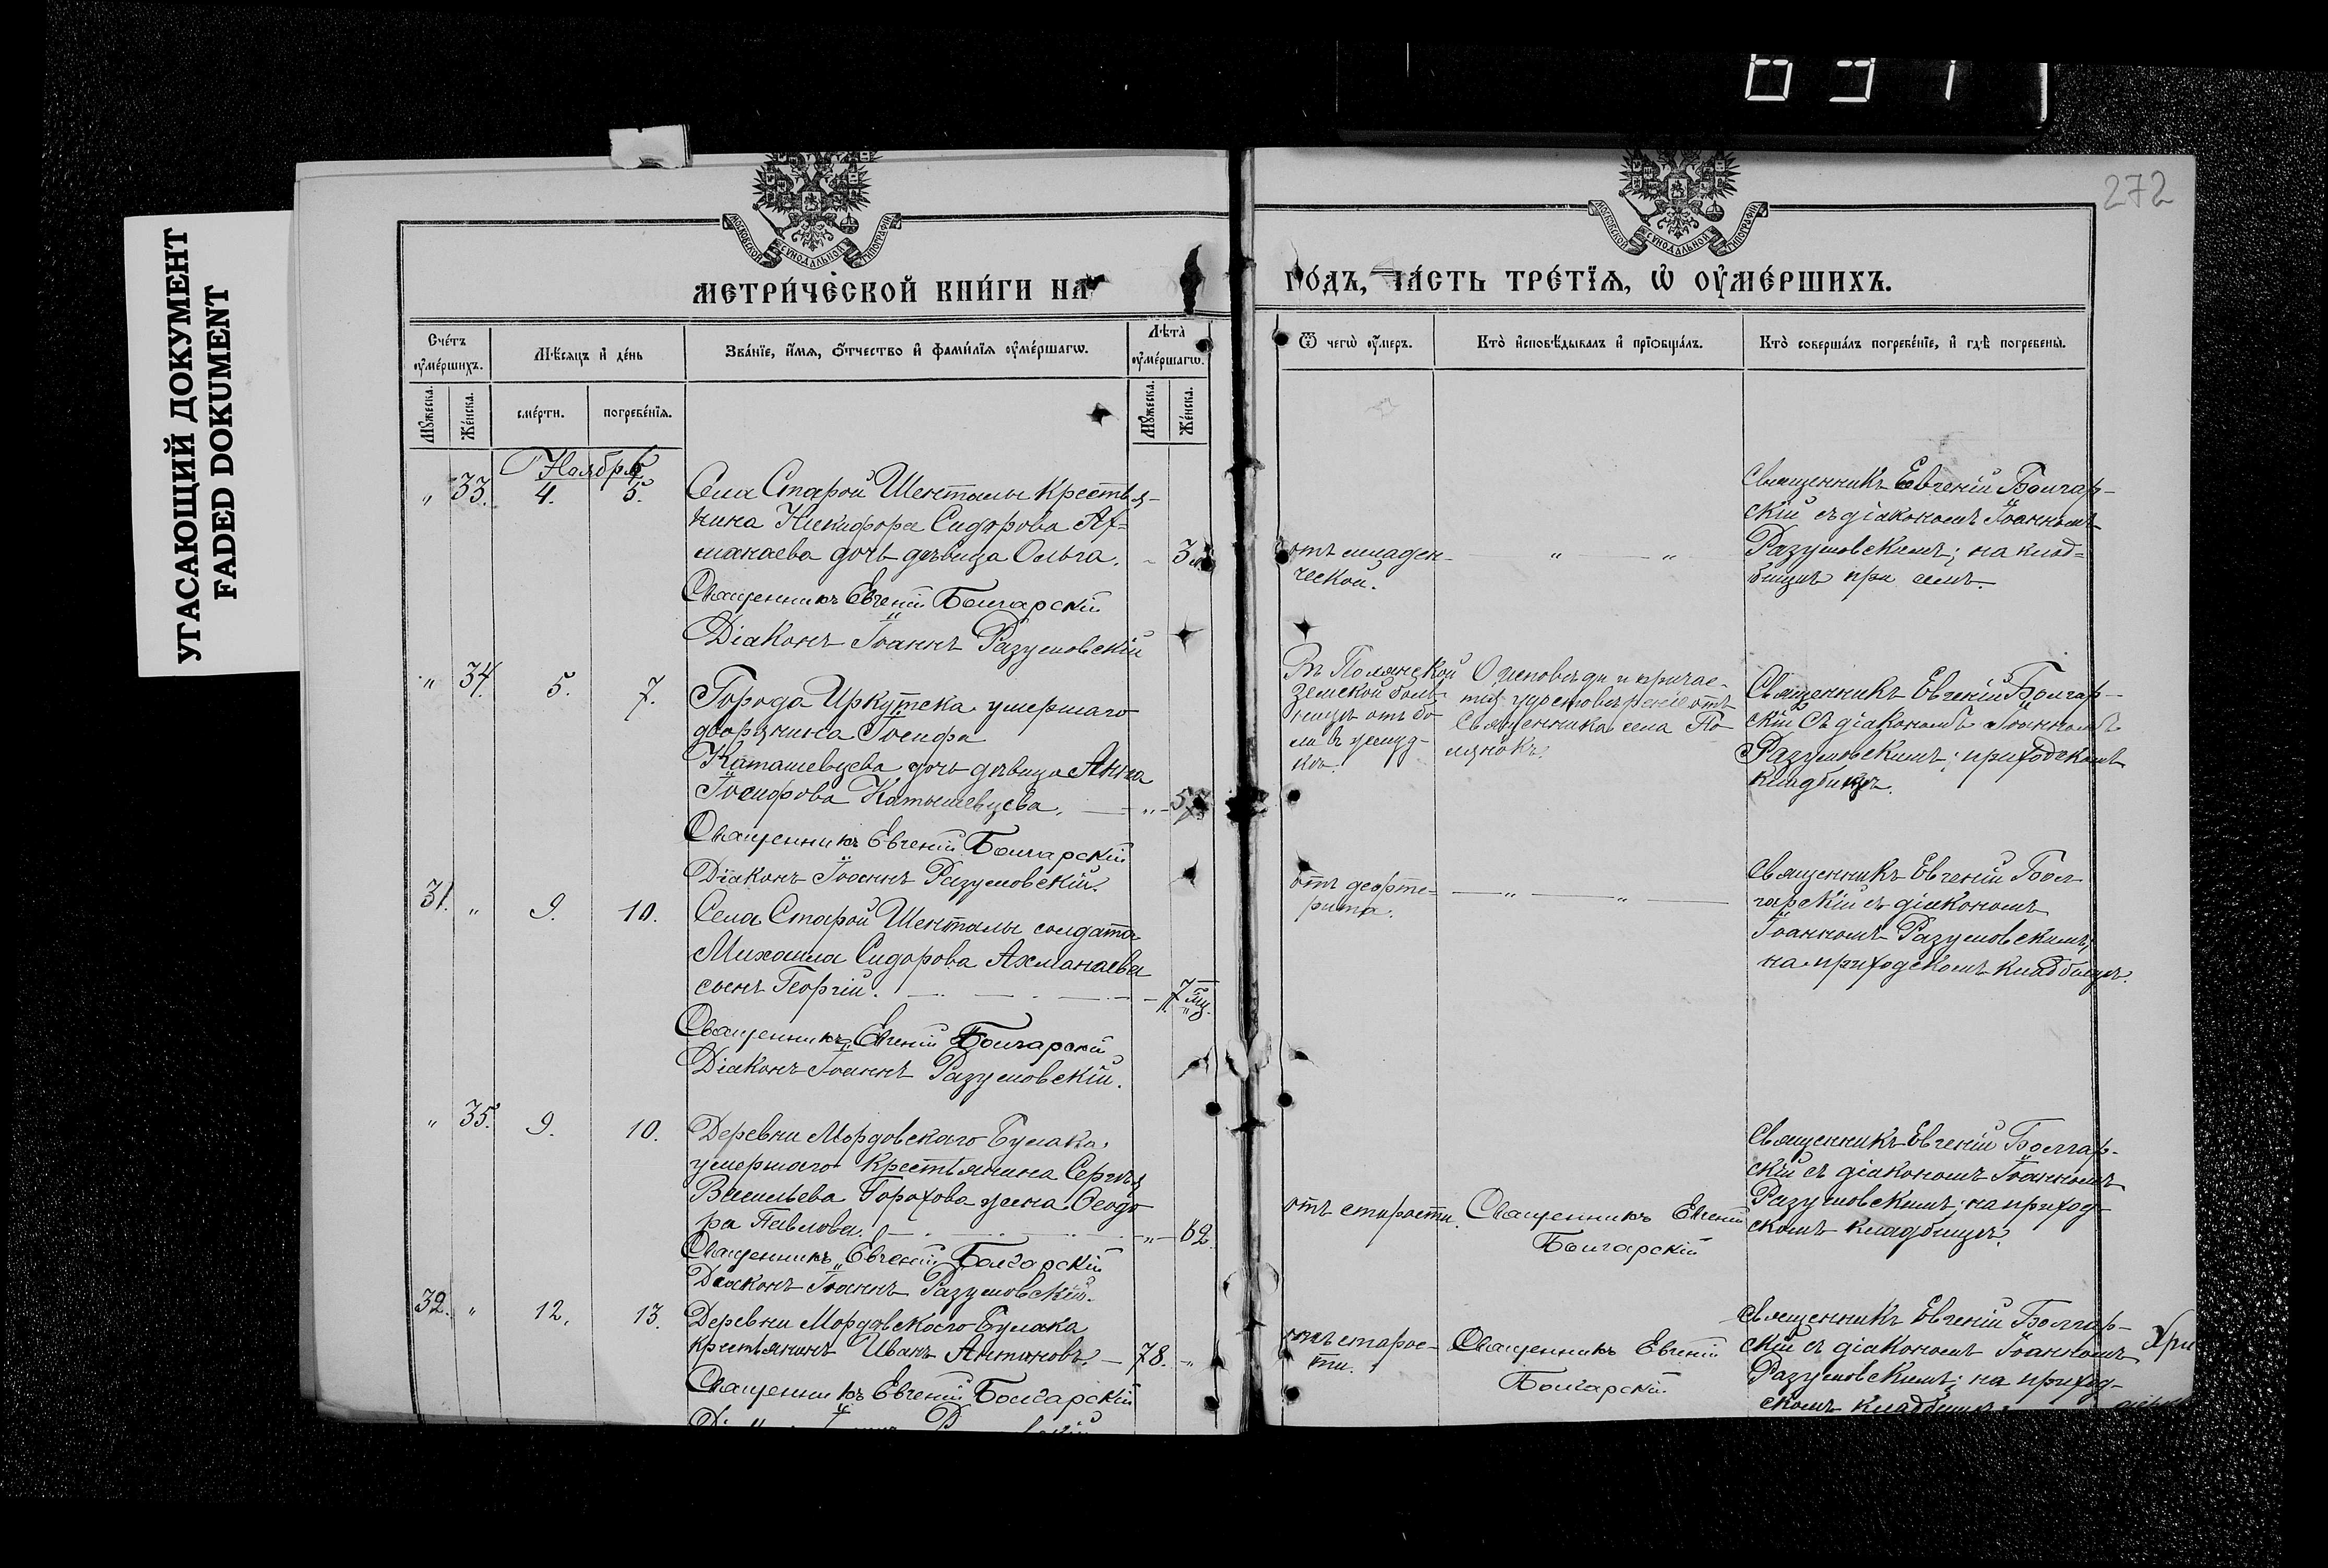 УГАСАЮЩИЙ ДОКУМЕНТ
FADED DOKUMENT
272
МОСКОВСКОЙ СѴНОДАЛЬНОЙ ТИПОГРАФІИ
МОСКОВСКОЙ СѴНОДАЛЬНОЙ ТИПОГРАФІИ
МЕТРИ́ЧЕСКОЙ КНИ́ГИ НА
ГО́ДЪ, ЧА́СТЬ ТРЕ́ТЇѦ, Ѡ҆ ОУ҆МЕ́РШИХЪ.
Сче́тъ оу҆ме́ршихъ.
Мѣ́сяцъ и҆ де́нь
Зва́нїе, и҆́мя, ѻ҆́тчество и҆ фами́лїя оу҆ме́ршагѡ.
Лѣта̀ оу҆ме́ршагѡ.
Мꙋ́жеска.
Же́нска.
сме́рти.
погребе́нїя.
Мꙋ́жеска.
Же́нска.
Ѿ чегѡ̀ оу҆́меръ.
Кто̀ и҆сповѣ́дывалъ и҆ прїѡбща́лъ.
Кто̀ соверша́лъ погребе́нїе, и҆ гдѣ̀ погребены̀.
Ноябрь
" 33. 4. 5.
Села Старой Шенталы крестья-
нина Никифора Сидорова Ах-
манаева дочь дѣвица Ольга. 3
Священникъ Евгеній Болгарскій
Діаконъ Іоаннъ Разумовскій
отъ младен-
ческой.
" "
Священникъ Евгеній Болгар-
скій съ діакономъ Іоанномъ
Разумовскимъ; на клад-
бищѣ при селѣ.
" 34. 5. 7.
Города Иркутска умершаго
дворянина Іосифа
Каташевцева дочь дѣвица Анна
Іосифова Катышевцева.
Священникъ Евгеній Болгарскій
Діаконъ Іоаннъ Разумовскій.
Въ Полянской
земской боль-
ницѣ отъ бо-
ли въ желуд-
кѣ.
О исповѣди и причас-
тіи удостовѣреніе отъ
священника села По-
лянокъ.
Священникъ Евгеній Болгар-
скій съ діакономъ Іоанномъ
Разумовскимъ; приходскомъ
кладбищѣ.
31. " 9. 10.
Села Старой Шенталы солдата
Михаила Сидорова Ахманаева
сынъ Георгій. 7 мц.
Священникъ Евгеній Болгарскій
Діаконъ Іоаннъ Разумовскій.
отъ дефте-
рита.
" "
Священникъ Евгеній Бол-
гарскій съ діакономъ
Іоанномъ Разумовскимъ;
на приходскомъ кладбищѣ.
" 35. 9. 10.
Деревни Мордовскаго Булака,
умершаго крестьянина Сергѣя
Васильева Горохова жена Ѳеодо
ра Павлова. " 62.
Священникъ Евгеній Болгарскій
Діаконъ Іоаннъ Разумовскій.
отъ старости.
Священникъ Евгеній
Болгарскій
Священникъ Евгеній Болгар-
скій съ діакономъ Іоанномъ
Разумовскимъ; на приход-
скомъ кладбищѣ.
32. " 12. 13.
Деревни Мордовскаго Булака
крестьянинъ Иванъ Антиповъ. 78. "
Священникъ Евгеній Болгарскій
отъ старос-
ти.
Священникъ Евгеній
Болгарскій
Священникъ Евгеній Болгар-
скій съ діакономъ Іоанномъ
Разумовскимъ; на приход-
скомъ кладбищѣ.